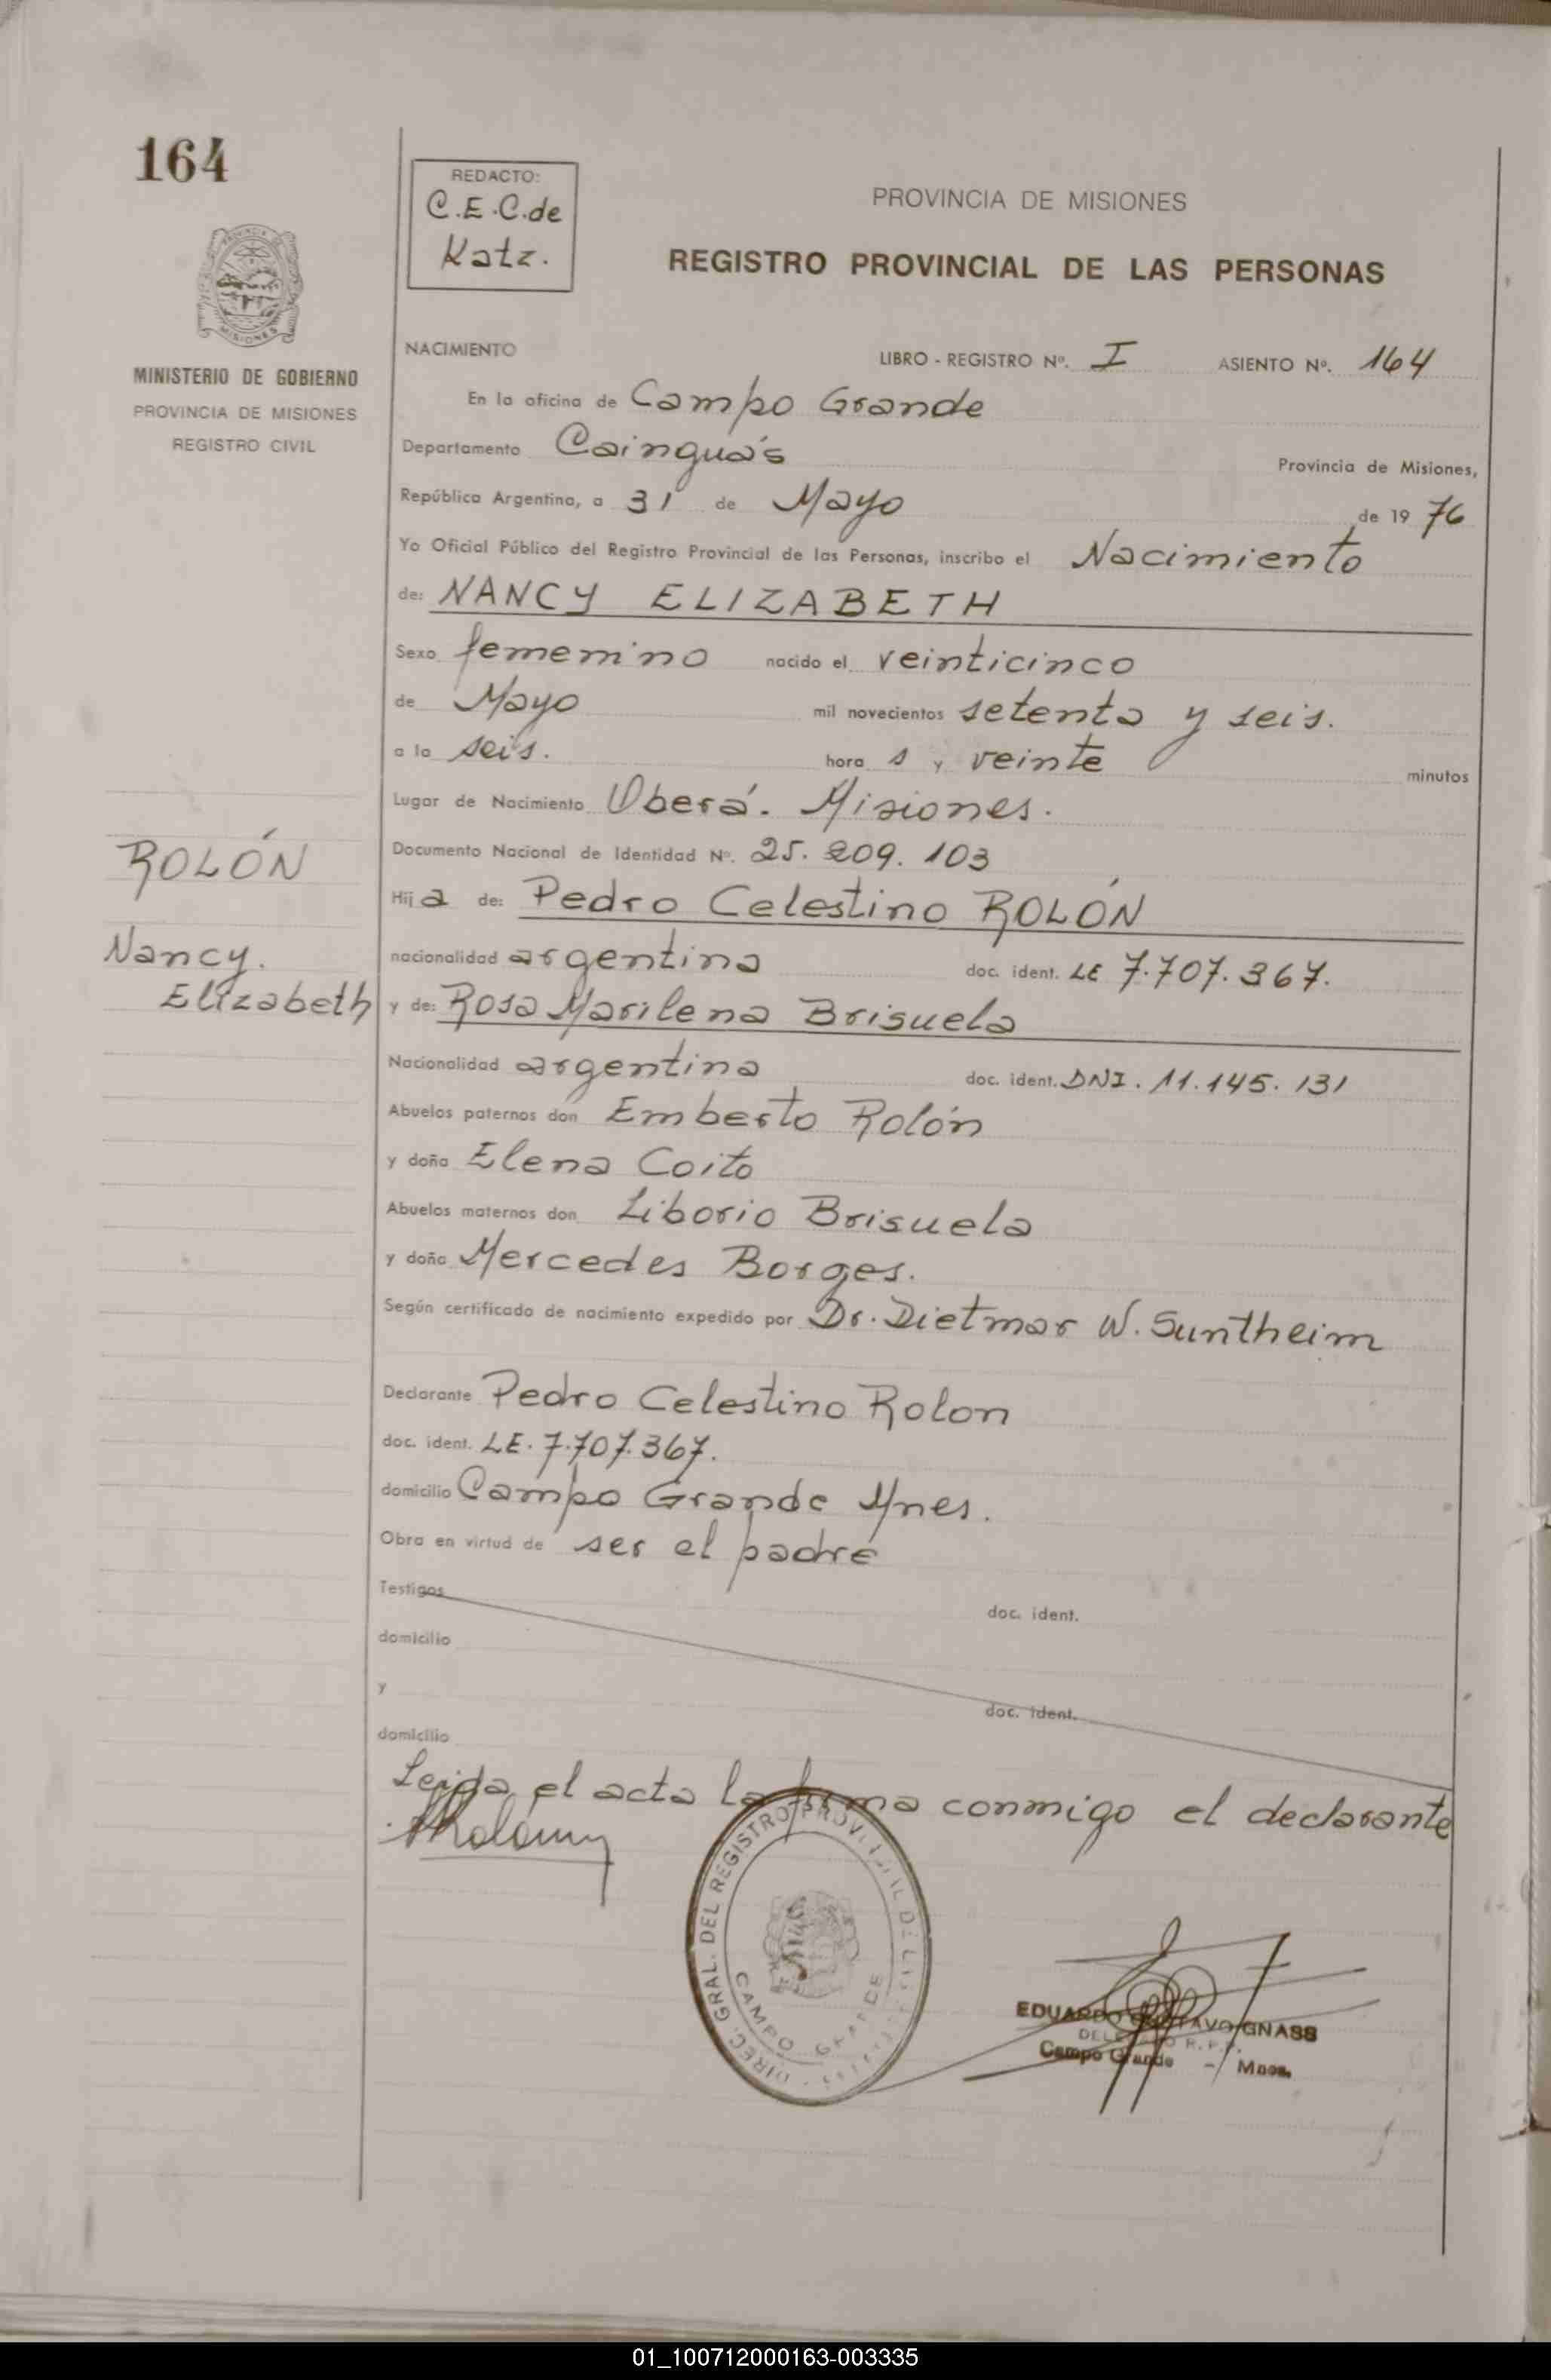 164
REDACTO:
C.E.C.de
Katz.
PROVINCIA DE MISIONES
REGISTRO PROVINCIAL DE LAS PERSONAS
MISIONES
MINISTERIO DE GOBIERNO
PROVINCIA DE MISIONES
REGISTRO CIVIL
NACIMIENTO LIBRO - REGISTRO Nº. I ASIENTO Nº. 164
En la oficina de Campo Grande
Departamento Cainguás Provincia de Misiones,
República Argentina, a 31 de Mayo de 19 76
Yo Oficial Público del Registro Provincial de las Personas, inscribo el Nacimiento
de: NANCY ELIZABETH
Sexo femenino nacido el veinticinco
de Mayo mil novecientos setenta y seis.
a la seis. hora s y veinte minutos
Lugar de Nacimiento Oberá. Misiones.
Documento Nacional de Identidad Nº. 25.209.103
ROLÓN
Nancy.
Elizabeth
Hij a de: Pedro Celestino ROLÓN
nacionalidad argentina doc. ident. LE 7.707.367.
y de: Rosa Marilena Brisuela
Nacionalidad argentina doc. ident. DNI. 11.145.131
Abuelos paternos don Emberto Rolón
y doña Elena Coito
Abuelos maternos don Liborio Brisuela
y doña Mercedes Borges.
Según certificado de nacimiento expedido por Dr. Dietmar W. Suntheim
Declarante Pedro Celestino Rolon
doc. ident. LE. 7.707.367.
domicilio Campo Grande Mnes.
Obra en virtud de ser el padre
Testigos doc. ident.
domicilio
y doc. ident.
domicilio
Leida el acta la firma conmigo el declarante
DIREC. GRAL. DEL REGISTRO PROVINCIAL DE LAS PERSONAS
CAMPO GRANDE
EDUARDO GUSTAVO GNASS
DELEGADO R.P.P.
Campo Grande - Mnes.
01_100712000163-003335